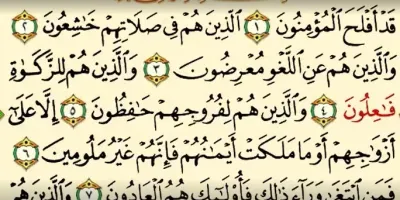 قَدْ أَفْلَحَ الْمُؤْمِنُونَ ١ الَّذِينَ هُمْ فِي صَلَاتِهِمْ خَٰشِعُونَ ٢
وَالَّذِينَ هُمْ عَنِ اللَّغْوِ مُعْرِضُونَ ٣ وَالَّذِينَ هُمْ لِلزَّكَوٰةِ
فَٰعِلُونَ ٤ وَالَّذِينَ هُمْ لِفُرُوجِهِمْ حَٰفِظُونَ ٥ إِلَّا عَلَىٰٓ
أَزْوَٰجِهِمْ أَوْ مَا مَلَكَتْ أَيْمَٰنُهُمْ فَإِنَّهُمْ غَيْرُ مَلُومِينَ ٦
فَمَنِ ابْتَغَىٰ وَرَآءَ ذَٰلِكَ فَأُو۟لَٰٓئِكَ هُمُ الْعَادُونَ ٧ وَالَّذِينَ هُمْ